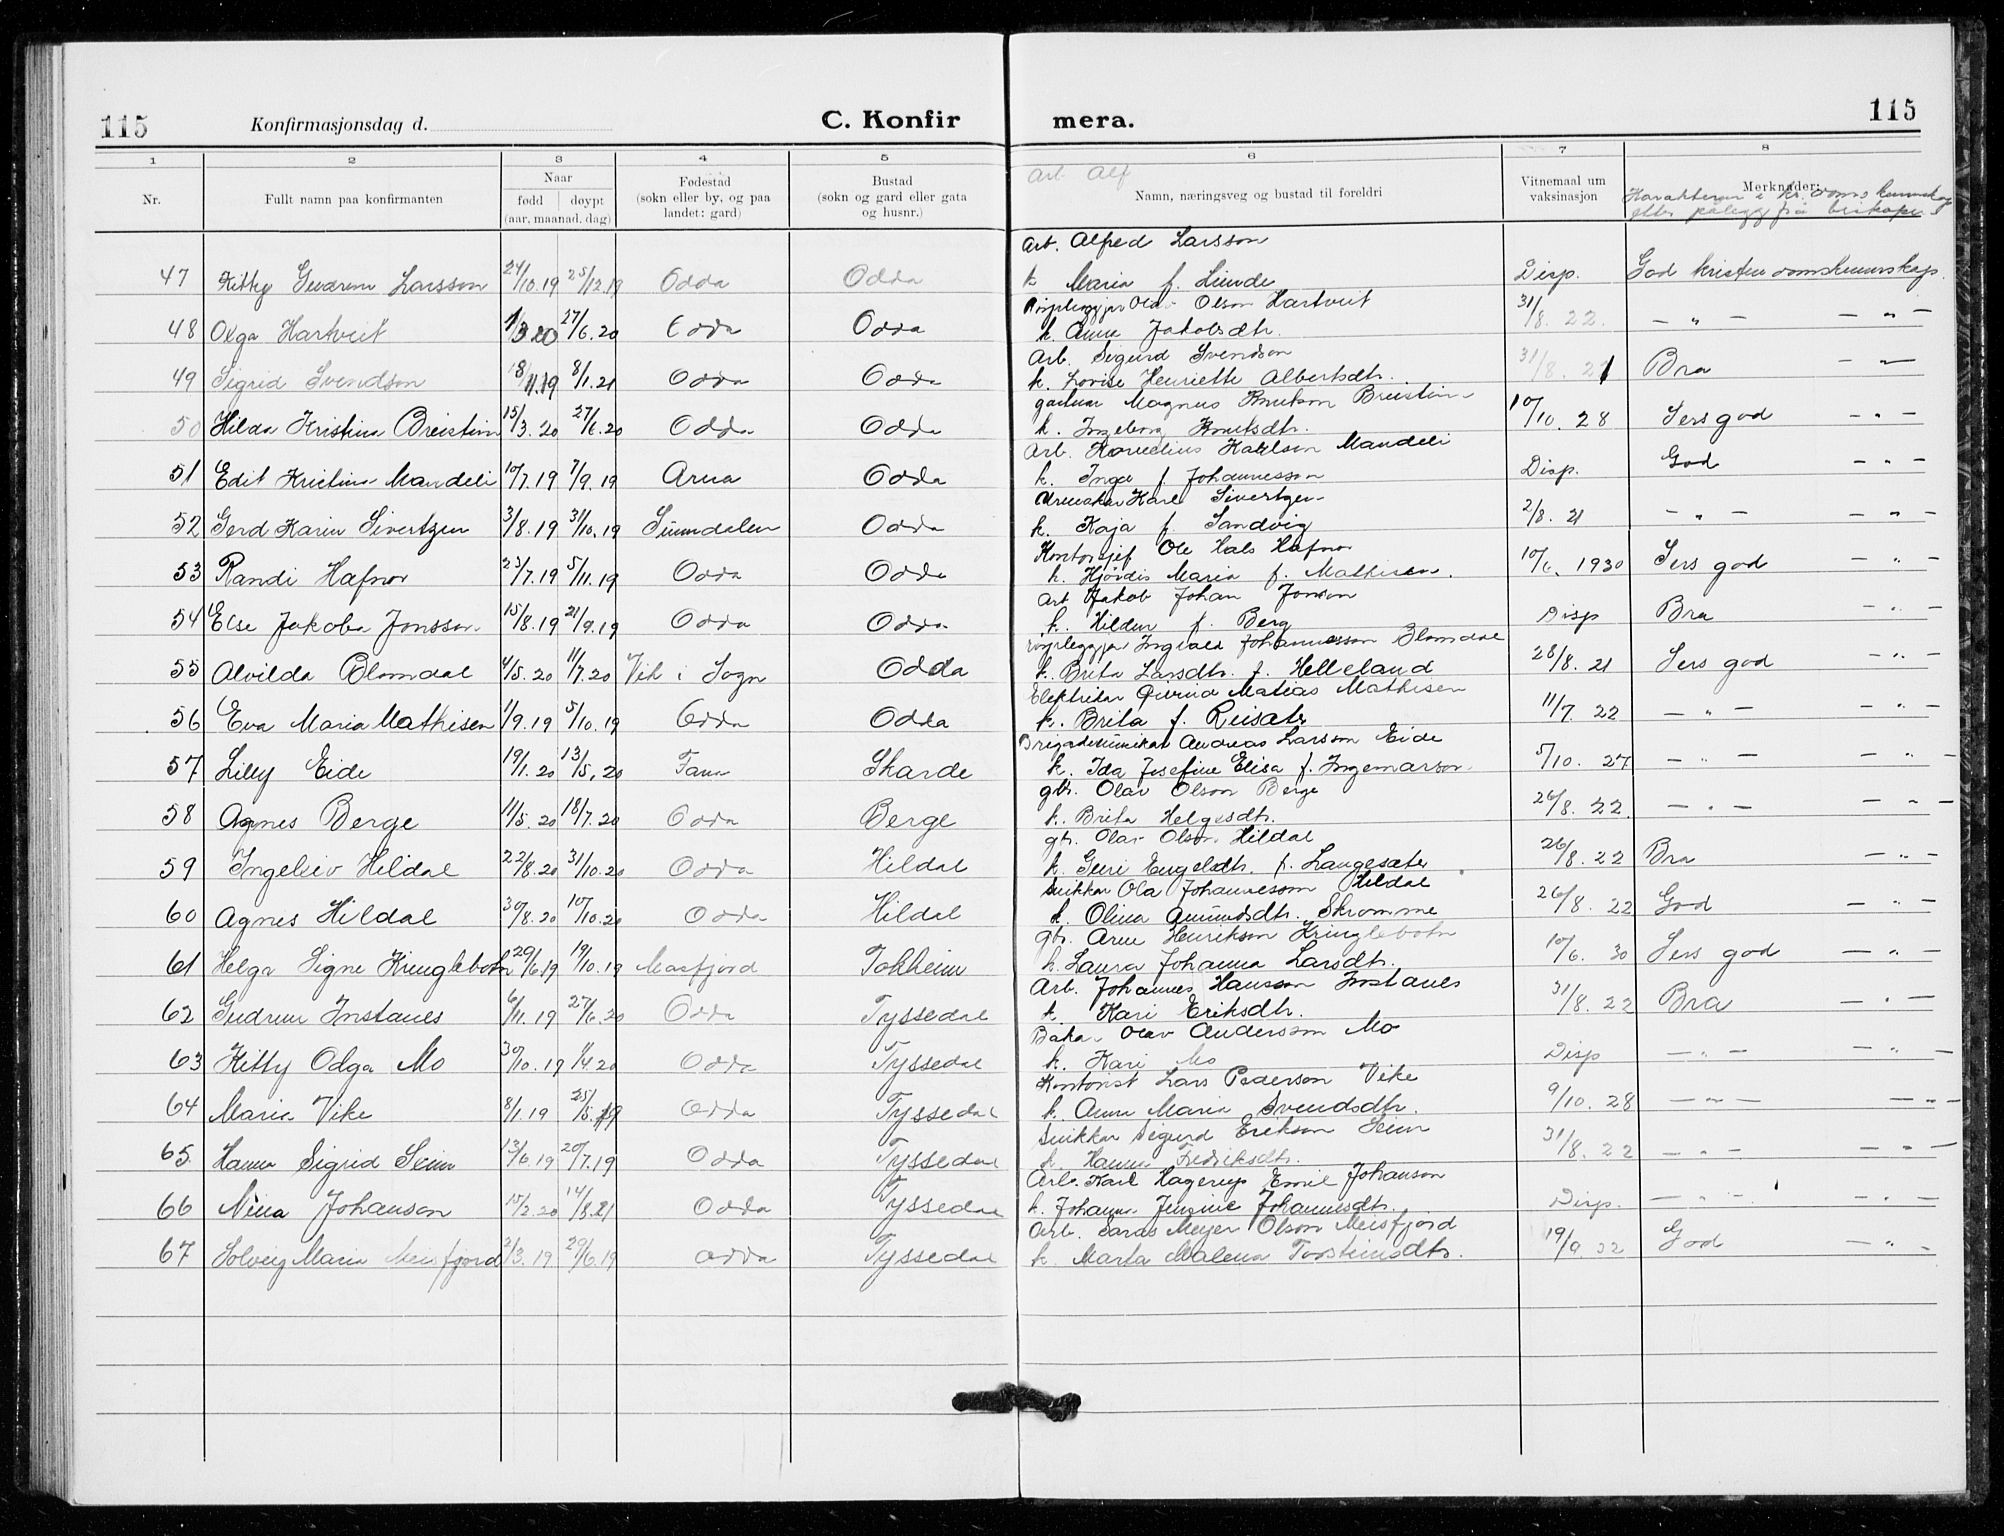 115 Konfirmasjonsdag d. C. Konfir mera. 115
1 2 3 4 5 6 7 8
Nr. Fullt namn paa konfirmanten Naar Fødestad Bustad Namn, næringsveg og bustad til foreldri Vitnemaal um Merknader:
fødd døypt (sokn eller by, og paa (sokn og gard eller gata vaksinasjon
(aar, maanad, dag) landet: gard) og husnr.)
Arb. Alf
Karakteren i kr.doms kunnskap
etter pålegg frå biskopen
Arb. Alfred Larsson
47 Kitty Gudrun Larsson 24/10.19 25/12.19 Odda Odda k. Maria f. Disp. God kristendomskunnskap.
Røyrleggjar Ola Olson Hartveit
48 Olga Hartveit 1/3 20 27/6.20 Odda Odda k. Anna Jakobsdtr. 31/8. 22. — " — — " —
Arb. Sigurd Svendson
49 Sigrid Svendson 18/11.19 8/1.21 Odda Odda k. Lovise Henriette Albertsdtr. 31/8. 21 Bra — " —
Magnus Knutson Breistein
50 Hilda Kristina Breistein 15/3.20 27/6.20 Odda Odda k. Ingeborg Knutsdtr. 10/10. 28 Sers god — " —
Arb. Kornelius Karlson Mandeli
51 Edit Kristine Mandeli 10/7.19 7/9.19 Arna Odda k. Inga f. Johannesson Disp. God — " —
Karl Sivertzen
52 Gerd Karin Sivertzen 3/8.19 31/10.19 Sunndalen Odda k. Kaja f. Sandvig 2/8. 21 — " — — " —
Kontorsjef Ole Hals Hafnor
53 Randi Hafnor 23/7.19 5/11.19 Odda Odda k. Hjørdis Maria f. Mathisen. 10/6. 1930 Sers god — " —
Arb Jakob Johan Jonson
54 Else Jakoba Jonsson 15/8.19 21/9.19 Odda Odda k. Hildur f. Berg Disp Bra — " —
røyrleggjar Ingvald Johannesson Blomdal
55 Alvilda Blomdal 4/5.20 11/7.20 Vik i Sogn Odda k. Brita Larsdtr. f. Helleland 28/8. 21 Sers god — " —
Elektriker Øivind Matias Mathisen
56 Eva Maria Mathisen 1/9.19 5/10.19 Odda Odda k. Brita f. Reisæter 11/7. 22 — " — — " —
Andreas Larsson Eide
57 Lilly Eide 19/1.20 13/5.20 Fana Skarde k. Ida Josefine Elisa f. Ingemarson 5/10. 27 — " — — " —
gbr. Olav Olson Berge
58 Agnes Berge 11/5.20 18/7.20 Odda Berge k. Brita Helgesdtr. 26/8. 22. — " — — " —
gbr. Olav Olson Hildal
59 Ingeleiv Hildal 22/8.20 31/10.20 Odda Hildal k. Guri Engelsdtr. f. Langesæter 26/8. 22 Bra — " —
Snikkar Ola Johannesson Hildal
60 Agnes Hildal 30/8.20 10/10.20 Odda Hildal k. Olina Amundsdtr. Skromme 26/8. 22 God — " —
gbr. Arne Henrikson Kringlebotn
61 Helga Signe Kringlebotn 29/6.19 19/10.19 Masfjord Tokheim k. Laura Johanna Larsdtr. 10/6. 30 Sers god — " —
Arb. Johannes Hansson Instanes
62 Gudrun Instanes 6/11.19 27/6.20 Odda Tyssedal k. Kari Eriksdtr. 31/8. 22 Bra — " —
Bakar Olav Anderson Mo
63 Kitty Odga Mo 30/10.19 11/4.20 Odda Tyssedal k. Kari Mo Disp — " — — " —
Kontorist Lars Pederson Vike
64 Maria Vike 8/1.19 25/5.19 Odda Tyssedal k. Anna Maria Svendsdtr. 9/10. 28 — " — — " —
Snikkar Sigurd Erikson Seim
65 Hanna Sigrid Seim 13/6.19 20/7.19 Odda Tyssedal k. Hanna Fredriksdtr. 31/8. 22 — " — — " —
Arb. Karl Hagerup Emil Johanson
66 Nina Johanson 15/2.20 14/8.21 Odda Tyssedal k. Johanna Jensine Johannesdtr. Disp. — " — — " —
Arb. Meyer Olson Meisfjord
67 Solveig Maria Meisfjord 2/3.19 29/6.19 Odda Tyssedal k. Marta Malena Torsteinsdtr. 19/9 32 God — " —